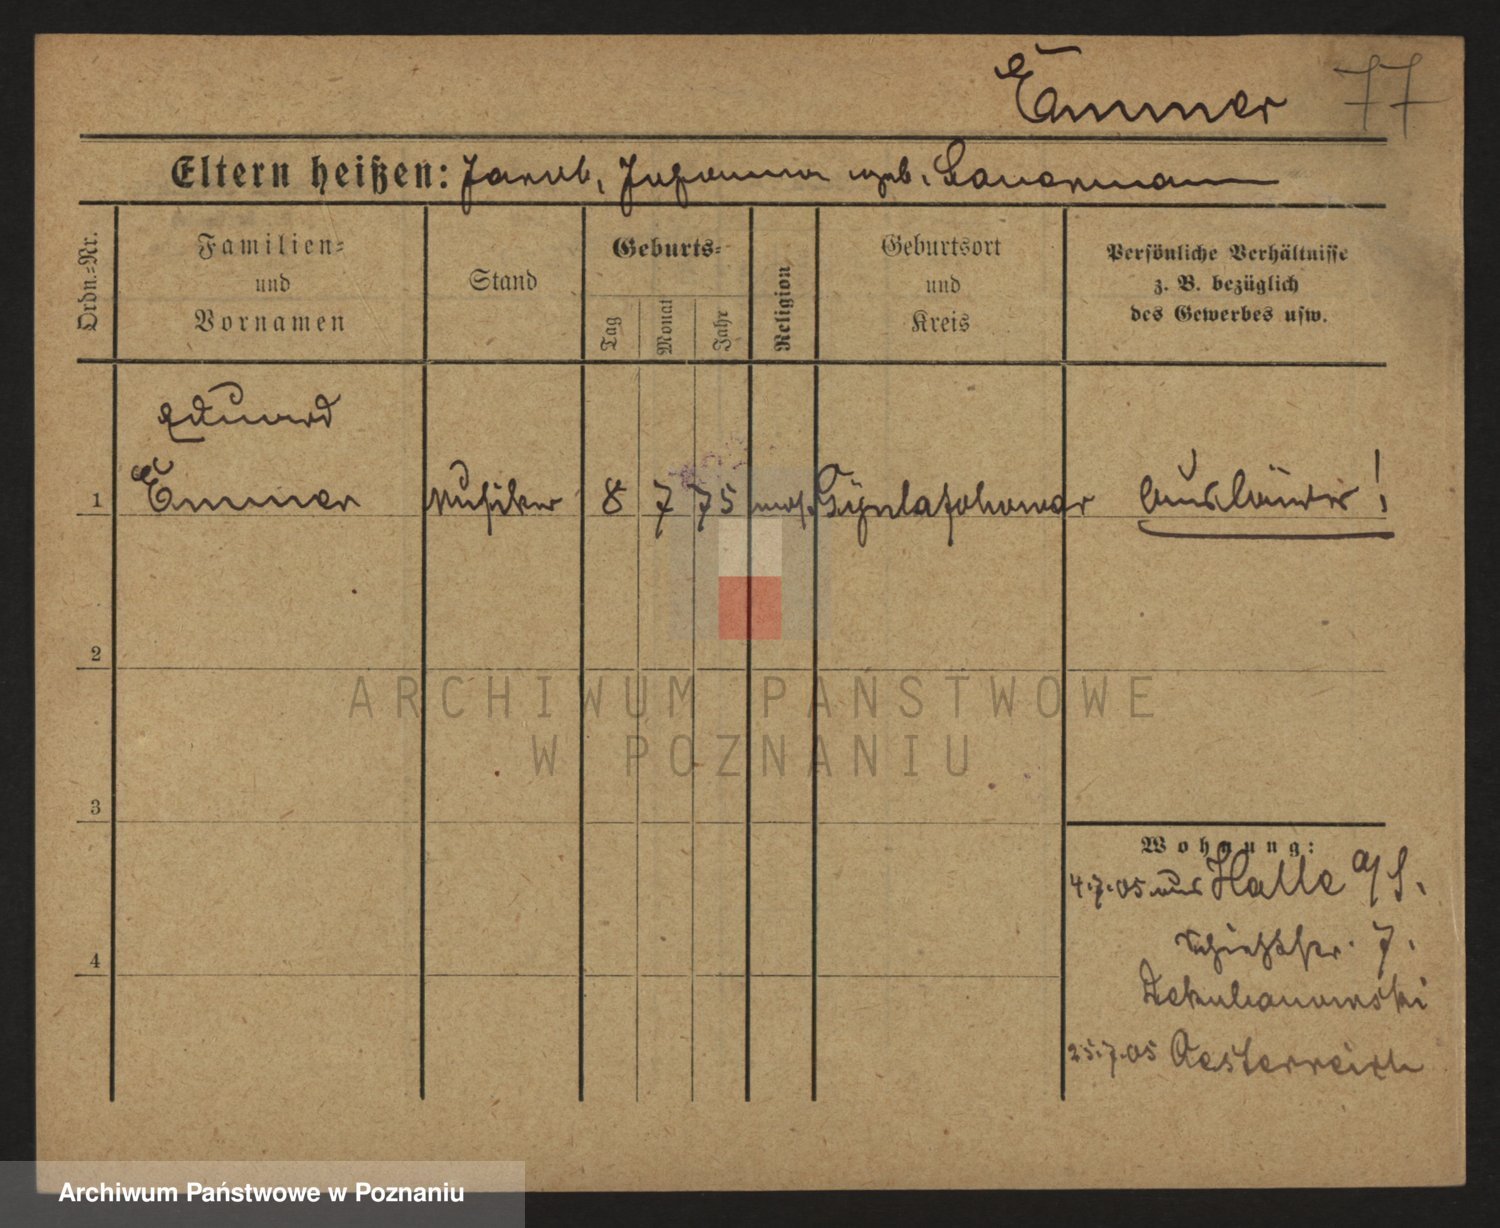 Emmer 77
Eltern heißen: Jakob, Johanna geb. Bauermann
Ordn.=Nr.
Familien=
und
Vornamen
Stand
Geburts=
Tag
Monat
Jahr
Religion
Geburtsort
und
Kreis
Persönliche Verhältnisse
z. B. bezüglich
des Gewerbes usw.
Eduard
1 Emmer Musiker 8 7 75 mos. Ausländer!
2
3
4
Wohnung:
4.7.05 aus Halle a/S.
7.
25.7.05 Oesterreich
ARCHIWUM PAŃSTWOWE
W POZNANIU
Archiwum Państwowe w Poznaniu